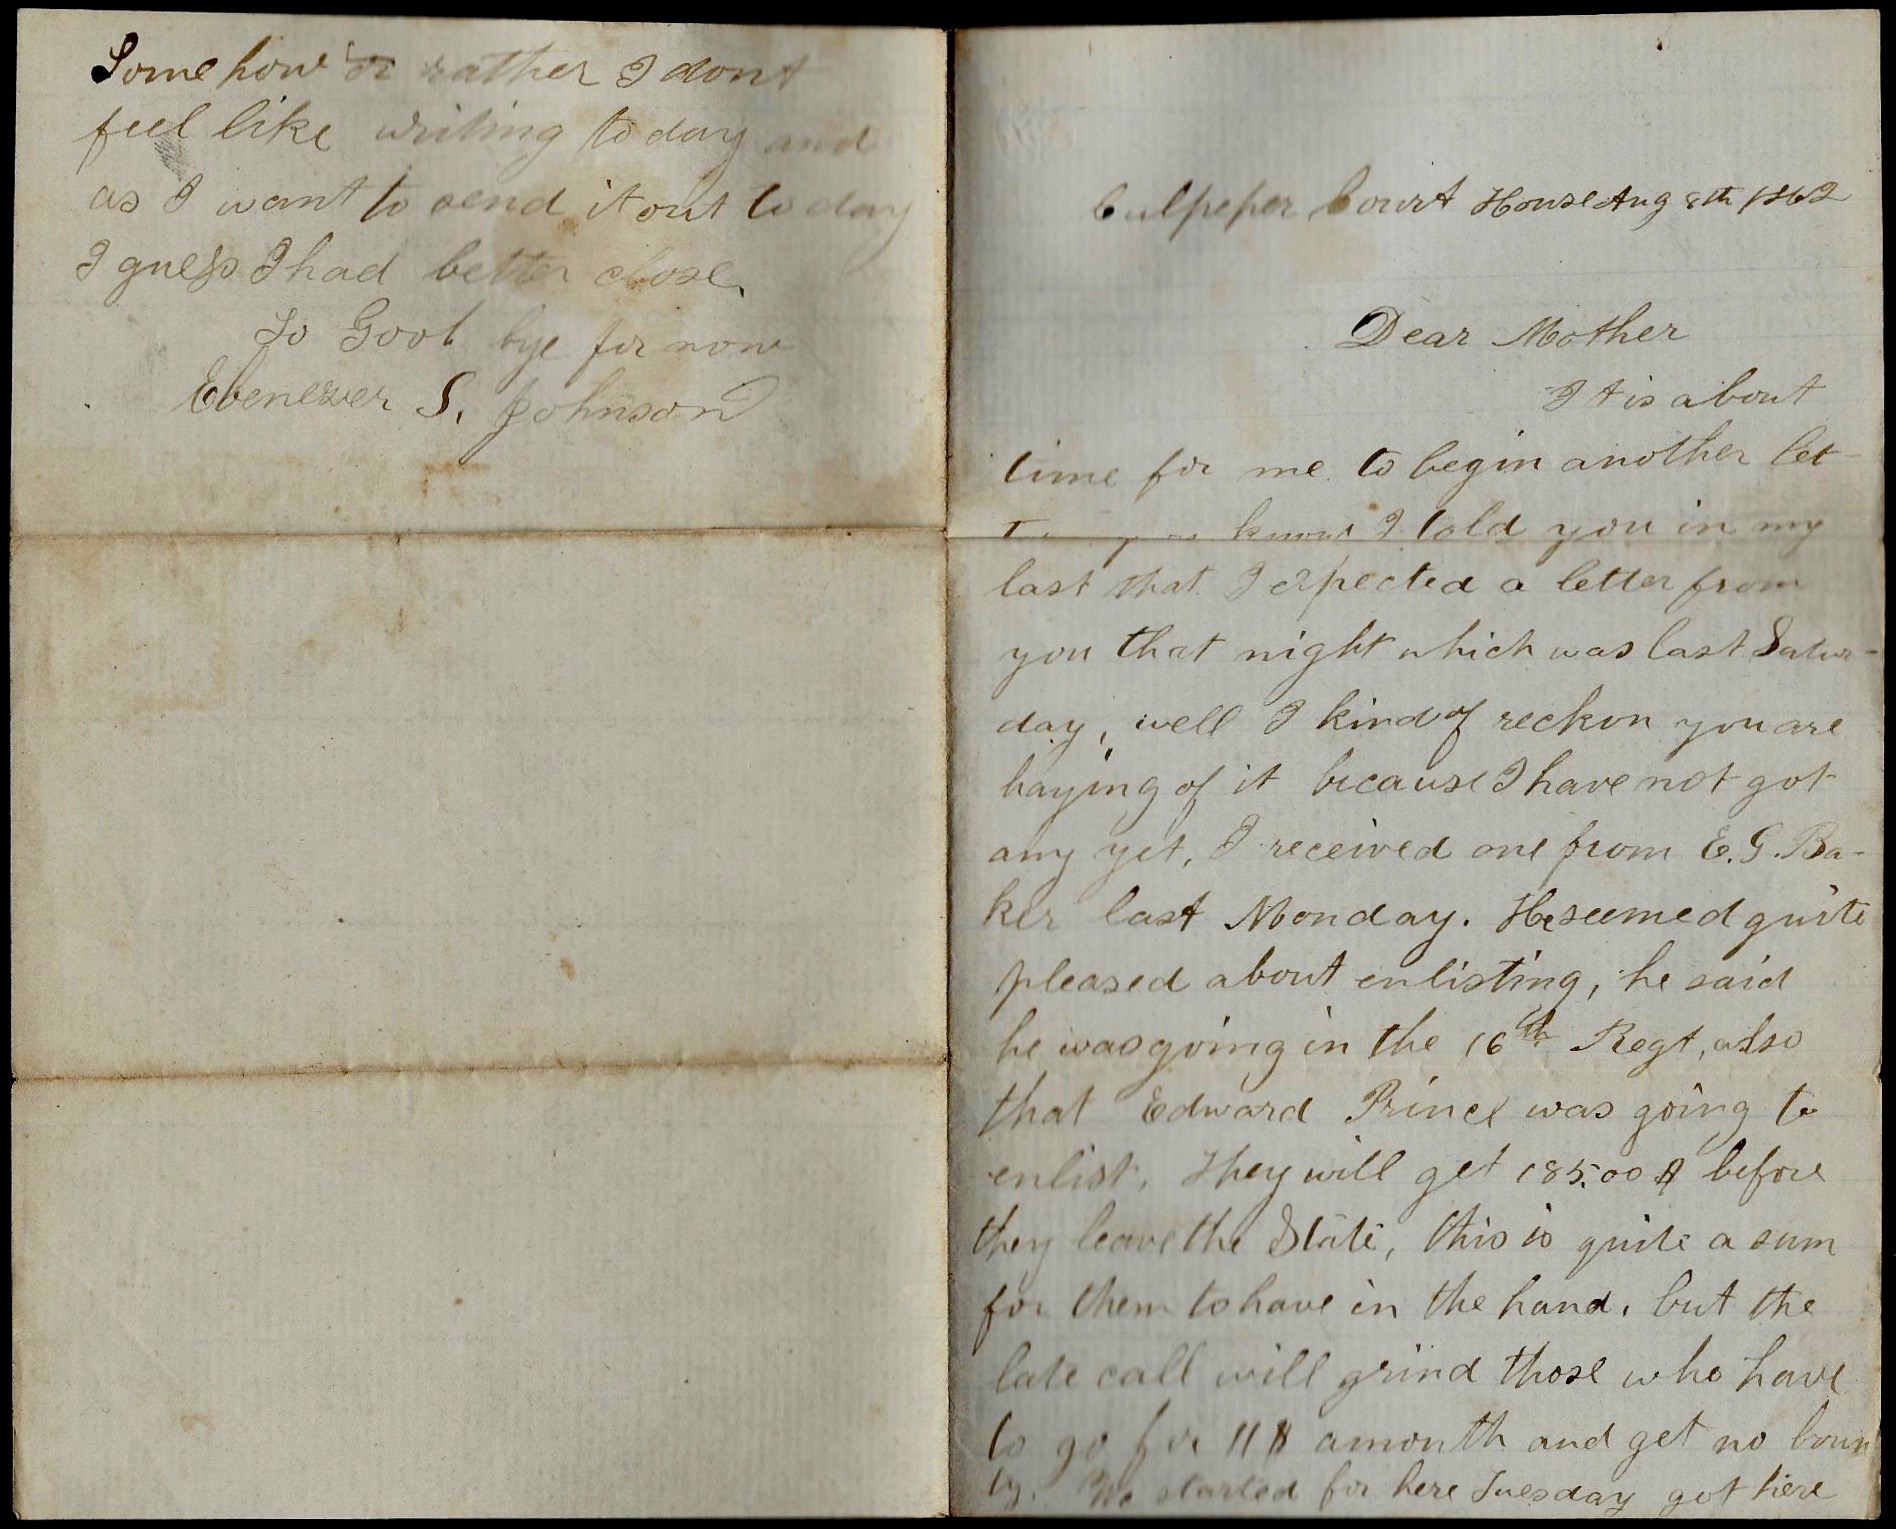 Some how or rather I dont
feel like writing to day and
as I want to send it out to day
I guess I had better close.
So Good bye for now
Ebenezer S. Johnson
Culpeper Court House Aug 8th 1862
Dear Mother
It is about
time for me to begin another let-
know I told you in my
last that I expected a letter from
you that night which was last Satur-
day, well I kind of reckon you are
haying of it because I have not got
any yet, I received one from E. G. Ba-
ker last Monday. He seemed quite
pleased about enlisting, he said
he was going in the 16th Regt, also
that Edward Prince was going to
enlist. They will get 185.00 $ before
they leave the State, this is quite a sum
for them to have in the hand, but the
late call will grind those who have
to go for 11 $ a month and get no boun
ty. We started for here Tuesday got here